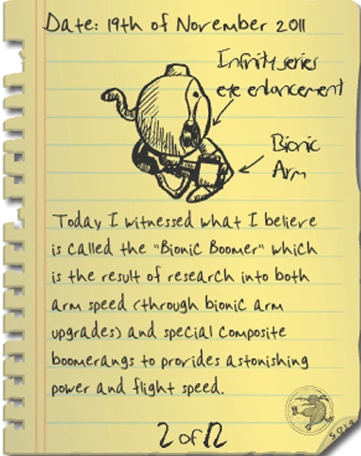 Date: 19th of November 2011
Infinity series
eye enhancement
Bionic
Arm
Today I witnessed what I believe
is called the "Bionic Boomer" which
is the result of research into both
arm speed (through bionic arm
upgrades) and special composite
boomerangs to provides astonishing
power and flight speed.
2 of 12